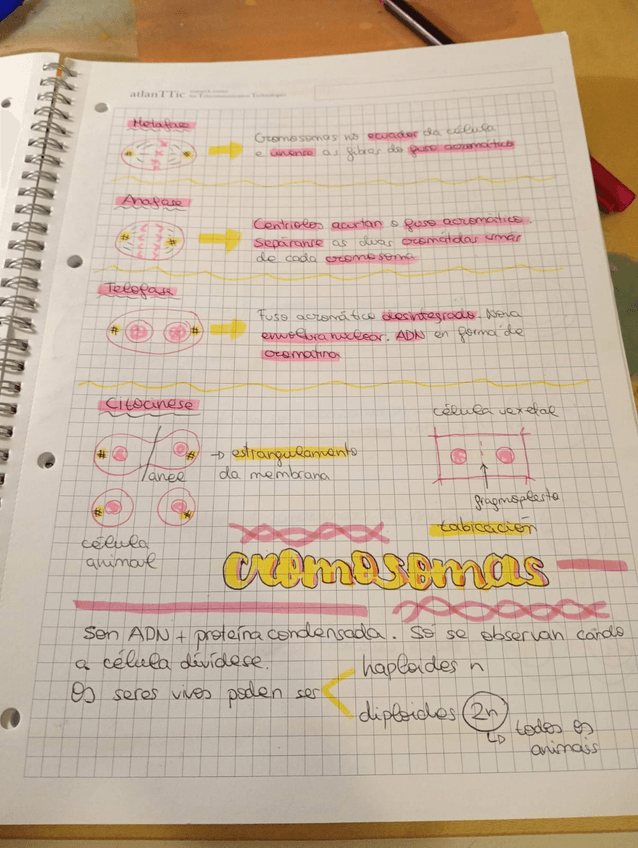 atlanTTic
Metafase
Cromosomas no ecuador da célula
e únense as fibras do fuso acromático
Anafase
Centriolos acurtan o fuso acromático.
Sepáranse as dúas cromátidas irmás
de cada cromosoma
Telofase
Fuso acromático desintegrado. Nova
envoltura nuclear. ADN en forma de
cromatina
Citocinese
célula vexetal
→ estrangulamento
da membrana
anel
fragmoplasto
tabicación
célula
animal
cromosomas
Son ADN + proteína condensada. Só se observan cando
a célula divídese.
Os seres vivos poden ser
haploides n
diploides 2n
↳ todos os
animais